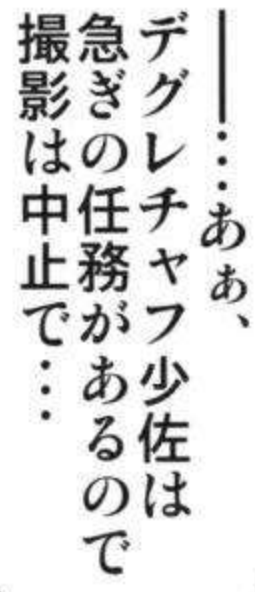 ――…あぁ、
デグレチャフ少佐は
急ぎの任務があるので
撮影は中止で…